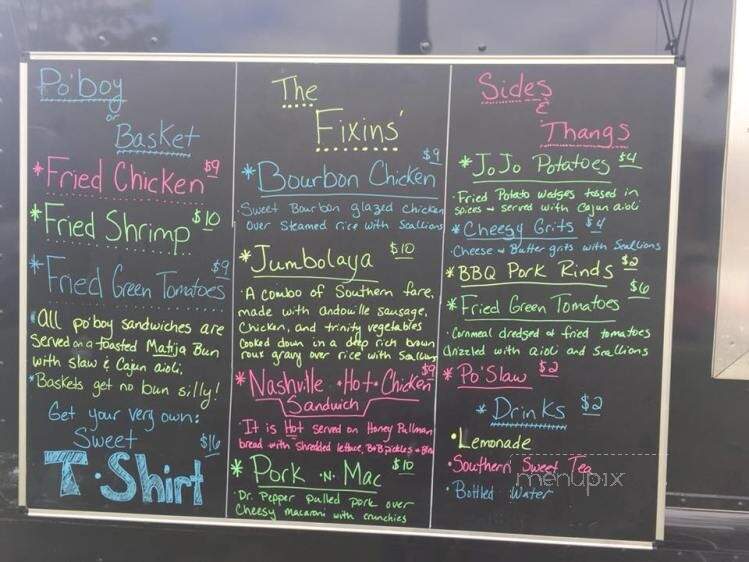 Po'boy
or
Basket
*Fried Chicken $9
*Fried Shrimp $10
*Fried Green Tomatoes $9
*All po'boy sandwiches are
served on a toasted Matija Bun
with slaw & Cajun aioli.
*Baskets get no bun silly!
Get your very own:
Sweet $16
T-Shirt
The
Fixins'
*Bourbon Chicken $9
Sweet Bourbon glazed chicken
over steamed rice with Scallions
*Jumbolaya $10
·A combo of Southern fare,
made with andouille sausage,
Chicken, and trinity vegetables
cooked down in a deep rich brown
roux gravy over rice with Scallions
*Nashville·Hot·Chicken $9
Sandwich
·It is Hot served on Honey Pullman
bread with shredded lettuce, B&B pickles &
*Pork ·N· Mac $10
·Dr. Pepper pulled pork over
Cheesy macaroni with crunchies
Sides
&
Thangs
*JoJo Potatoes $4
·Fried Potato wedges tossed in
spices & served with Cajun aioli
*Cheesy Grits $4
·Cheese & Butter grits with Scallions
*BBQ Pork Rinds $2
*Fried Green Tomatoes $6
·Cornmeal dredged & fried tomatoes
drizzled with aioli and Scallions
*Po'Slaw $2
*Drinks $2
·Lemonade
·Southern Sweet Tea
·Bottled Water
menupix